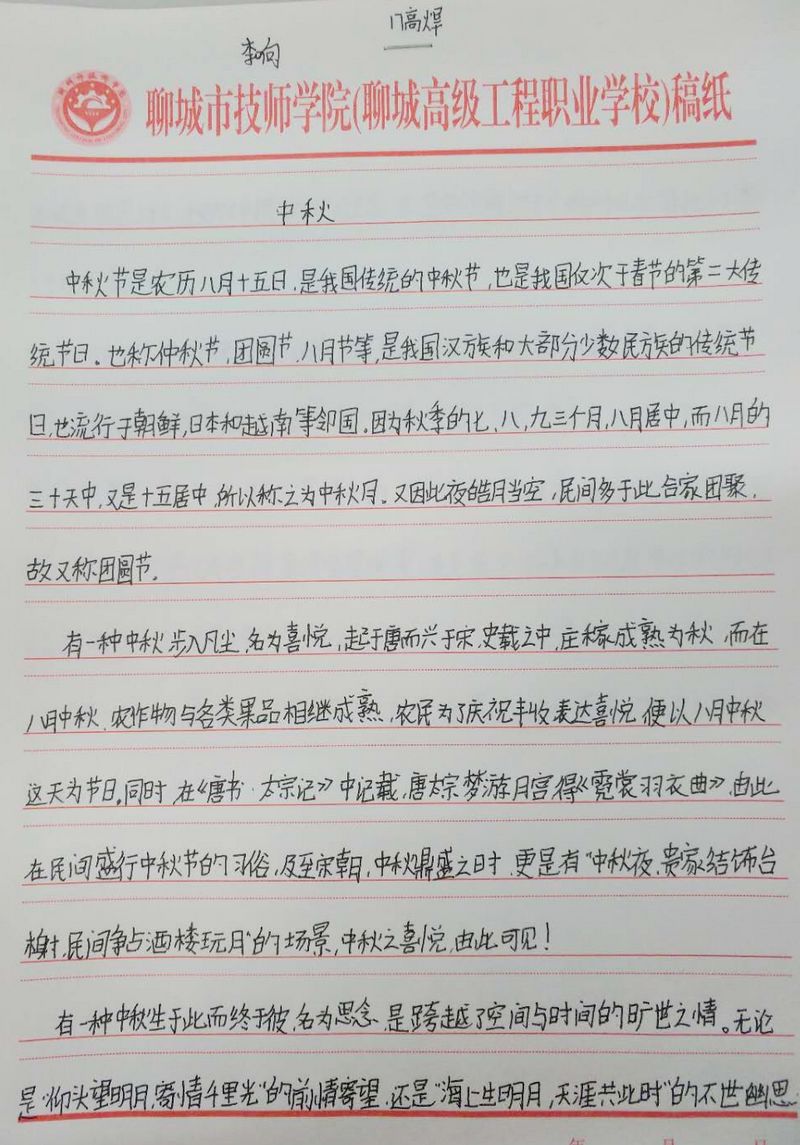 17高焊
李响
聊城市技师学院(聊城高级工程职业学校)稿纸
中秋
中秋节是农历八月十五日,是我国传统的中秋节,也是我国仅次于春节的第二大传
统节日。也称仲秋节,团圆节,八月节等,是我国汉族和大部分少数民族的传统节
日,也流行于朝鲜,日本和越南等邻国。因为秋季的七、八,九三个月,八月居中,而八月的
三十天中,又是十五居中,所以称之为中秋月。又因此夜皓月当空,民间多于此合家团聚,
故又称团圆节。
有一种中秋步入凡尘,名为喜悦,起于唐而兴于宋,史载之中,庄稼成熟为秋,而在
八月中秋,农作物与各类果品相继成熟,农民为了庆祝丰收表达喜悦,便以八月中秋
这天为节日。同时,在《唐书·太宗记》中记载,唐太宗梦游月宫得《霓裳羽衣曲》,由此
在民间盛行中秋节的习俗,及至宋朝,中秋鼎盛之时,更是有“中秋夜,贵家结饰台
榭,民间争占酒楼玩月”的场景,中秋之喜悦,由此可见!
有一种中秋生于此而终于彼,名为思念,是跨越了空间与时间的旷世之情。无论
是“仰头望明月,寄情千里光”的前情寄望,还是“海上生明月,天涯共此时”的不世幽思